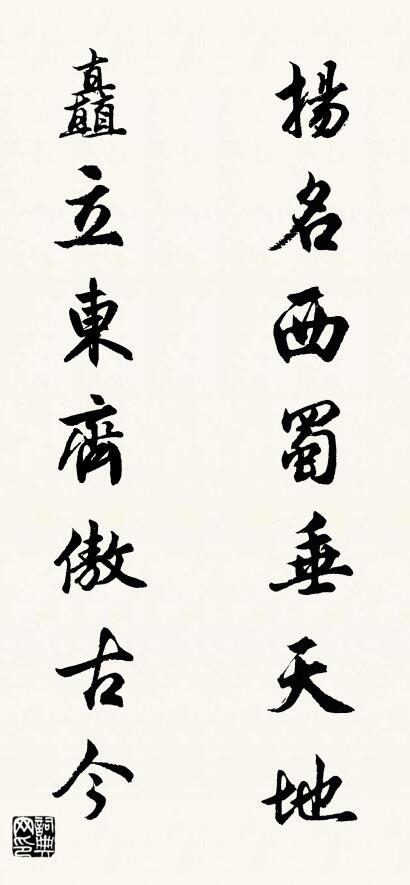 揚名西蜀垂天地
矗立東齊傲古今
詞典网印